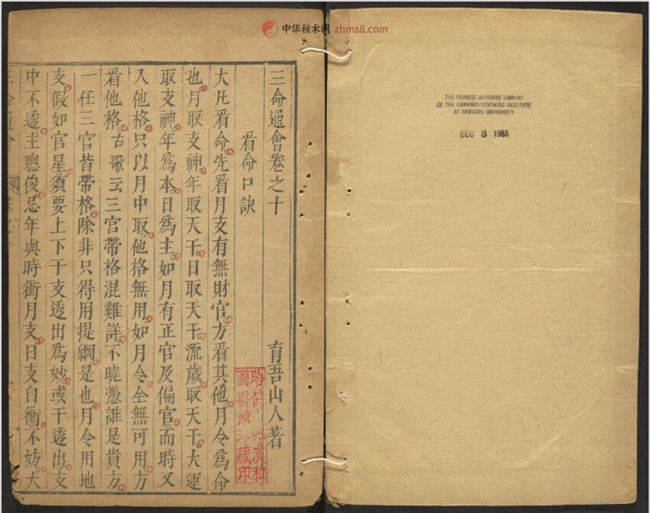 中华秘术网 zhms8.com
THE CHINESE-JAPANESE LIBRARY
OF THE HARVARD-YENCHING INSTITUTE
AT HARVARD UNIVERSITY
DEC 3 1955
三命通會卷之十
育吾山人著
看命口訣
大凡看命先看月支有無財官方看其他月令爲命
也月取支神年取天干日取天干流歲取天干大運
取支神年爲本日爲主如月有正官及偏官而時又
入他格只以月中取他格無用如月令全無可用方
看他格古歌云三宮帶格混難詳不曉憑誰是貴方
一任三宮皆帶格除非只得用提綱是也月令用地
支假如官星須要上下干支透出爲妙或干透出支
中不透主聰俊忌年與時衝月支日支自衝不妨大